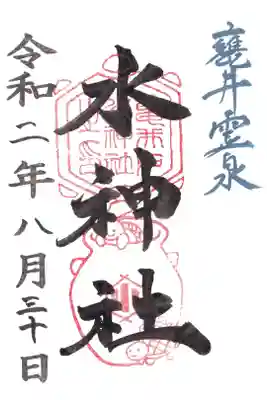 甕井霊泉
水神社
令和二年八月三十日